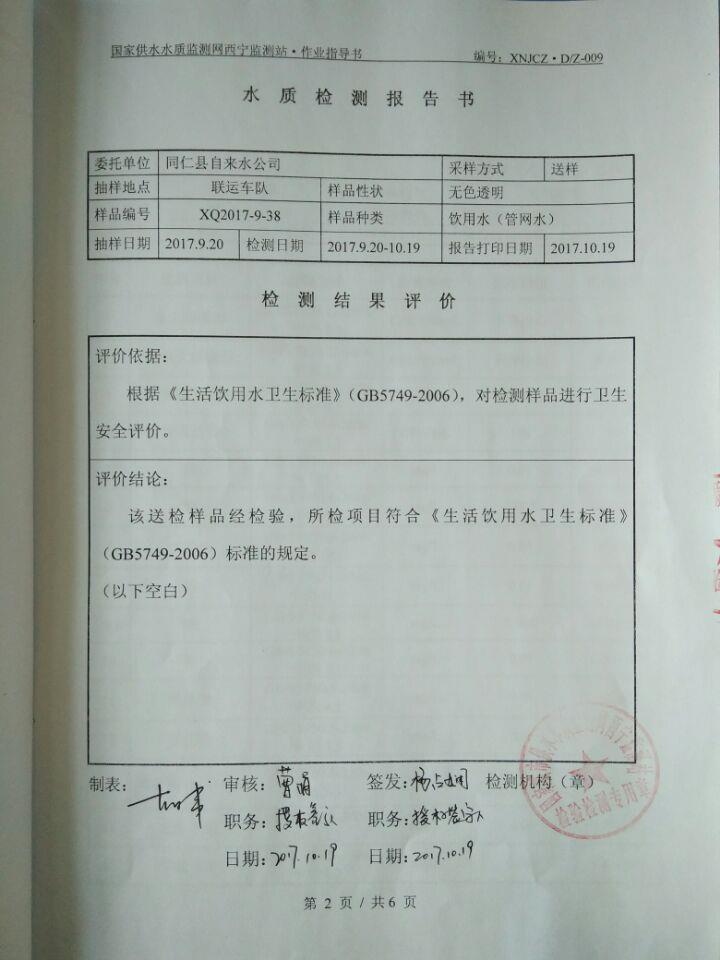 国家供水水质监测网西宁监测站·作业指导书 编号：XNJCZ·D/Z-009
水质检测报告书
委托单位 同仁县自来水公司 采样方式 送样
抽样地点 联运车队 样品性状 无色透明
样品编号 XQ2017-9-38 样品种类 饮用水（管网水）
抽样日期 2017.9.20 检测日期 2017.9.20-10.19 报告打印日期 2017.10.19
检测结果评价
评价依据：
根据《生活饮用水卫生标准》（GB5749-2006），对检测样品进行卫生
安全评价。
评价结论：
该送检样品经检验，所检项目符合《生活饮用水卫生标准》
（GB5749-2006）标准的规定。
（以下空白）
制表： 审核： 签发： 检测机构（章）
职务： 职务：授权签字人
日期：2017.10.19 日期：2017.10.19
检验检测专用章
第 2 页 / 共6 页